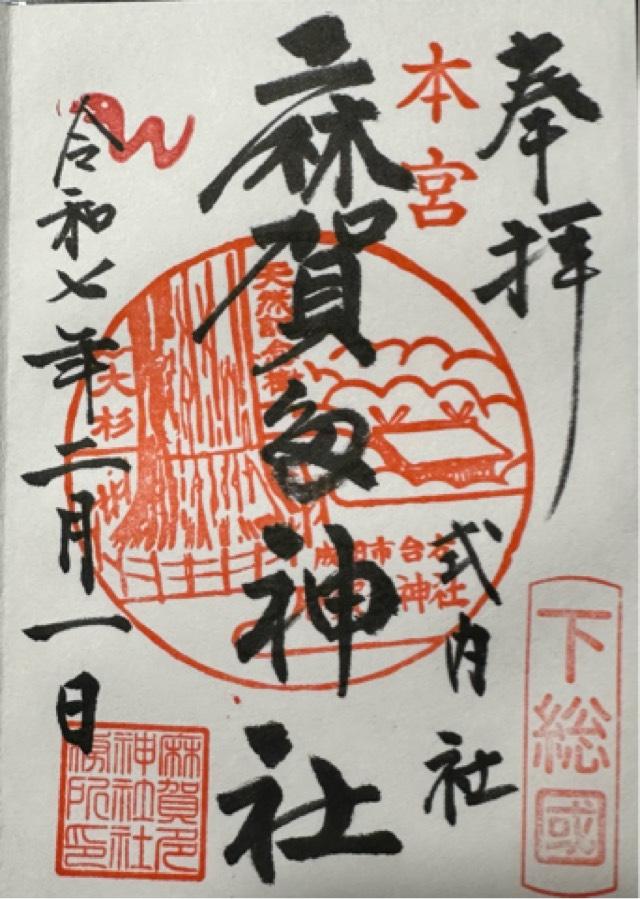 奉拝
本宮
式内社
下総國
麻賀多神社
天然記念樹
大杉
成田市台方
神社
令和七年二月一日
麻賀多
神社社
務所印